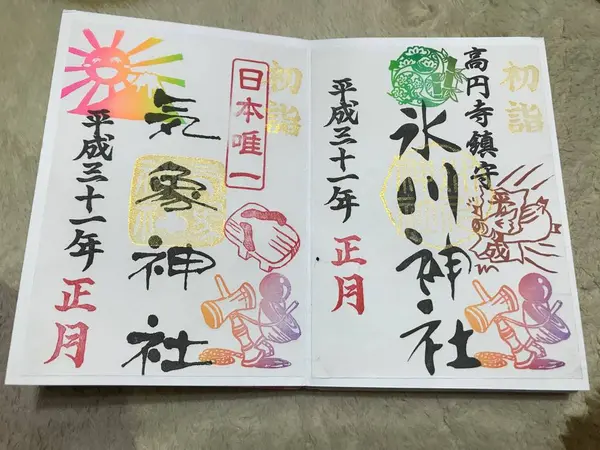 初詣
高円寺鎮守
氷川神社
平成三十一年 正月
初詣
日本唯一
気象神社
平成三十一年 正月